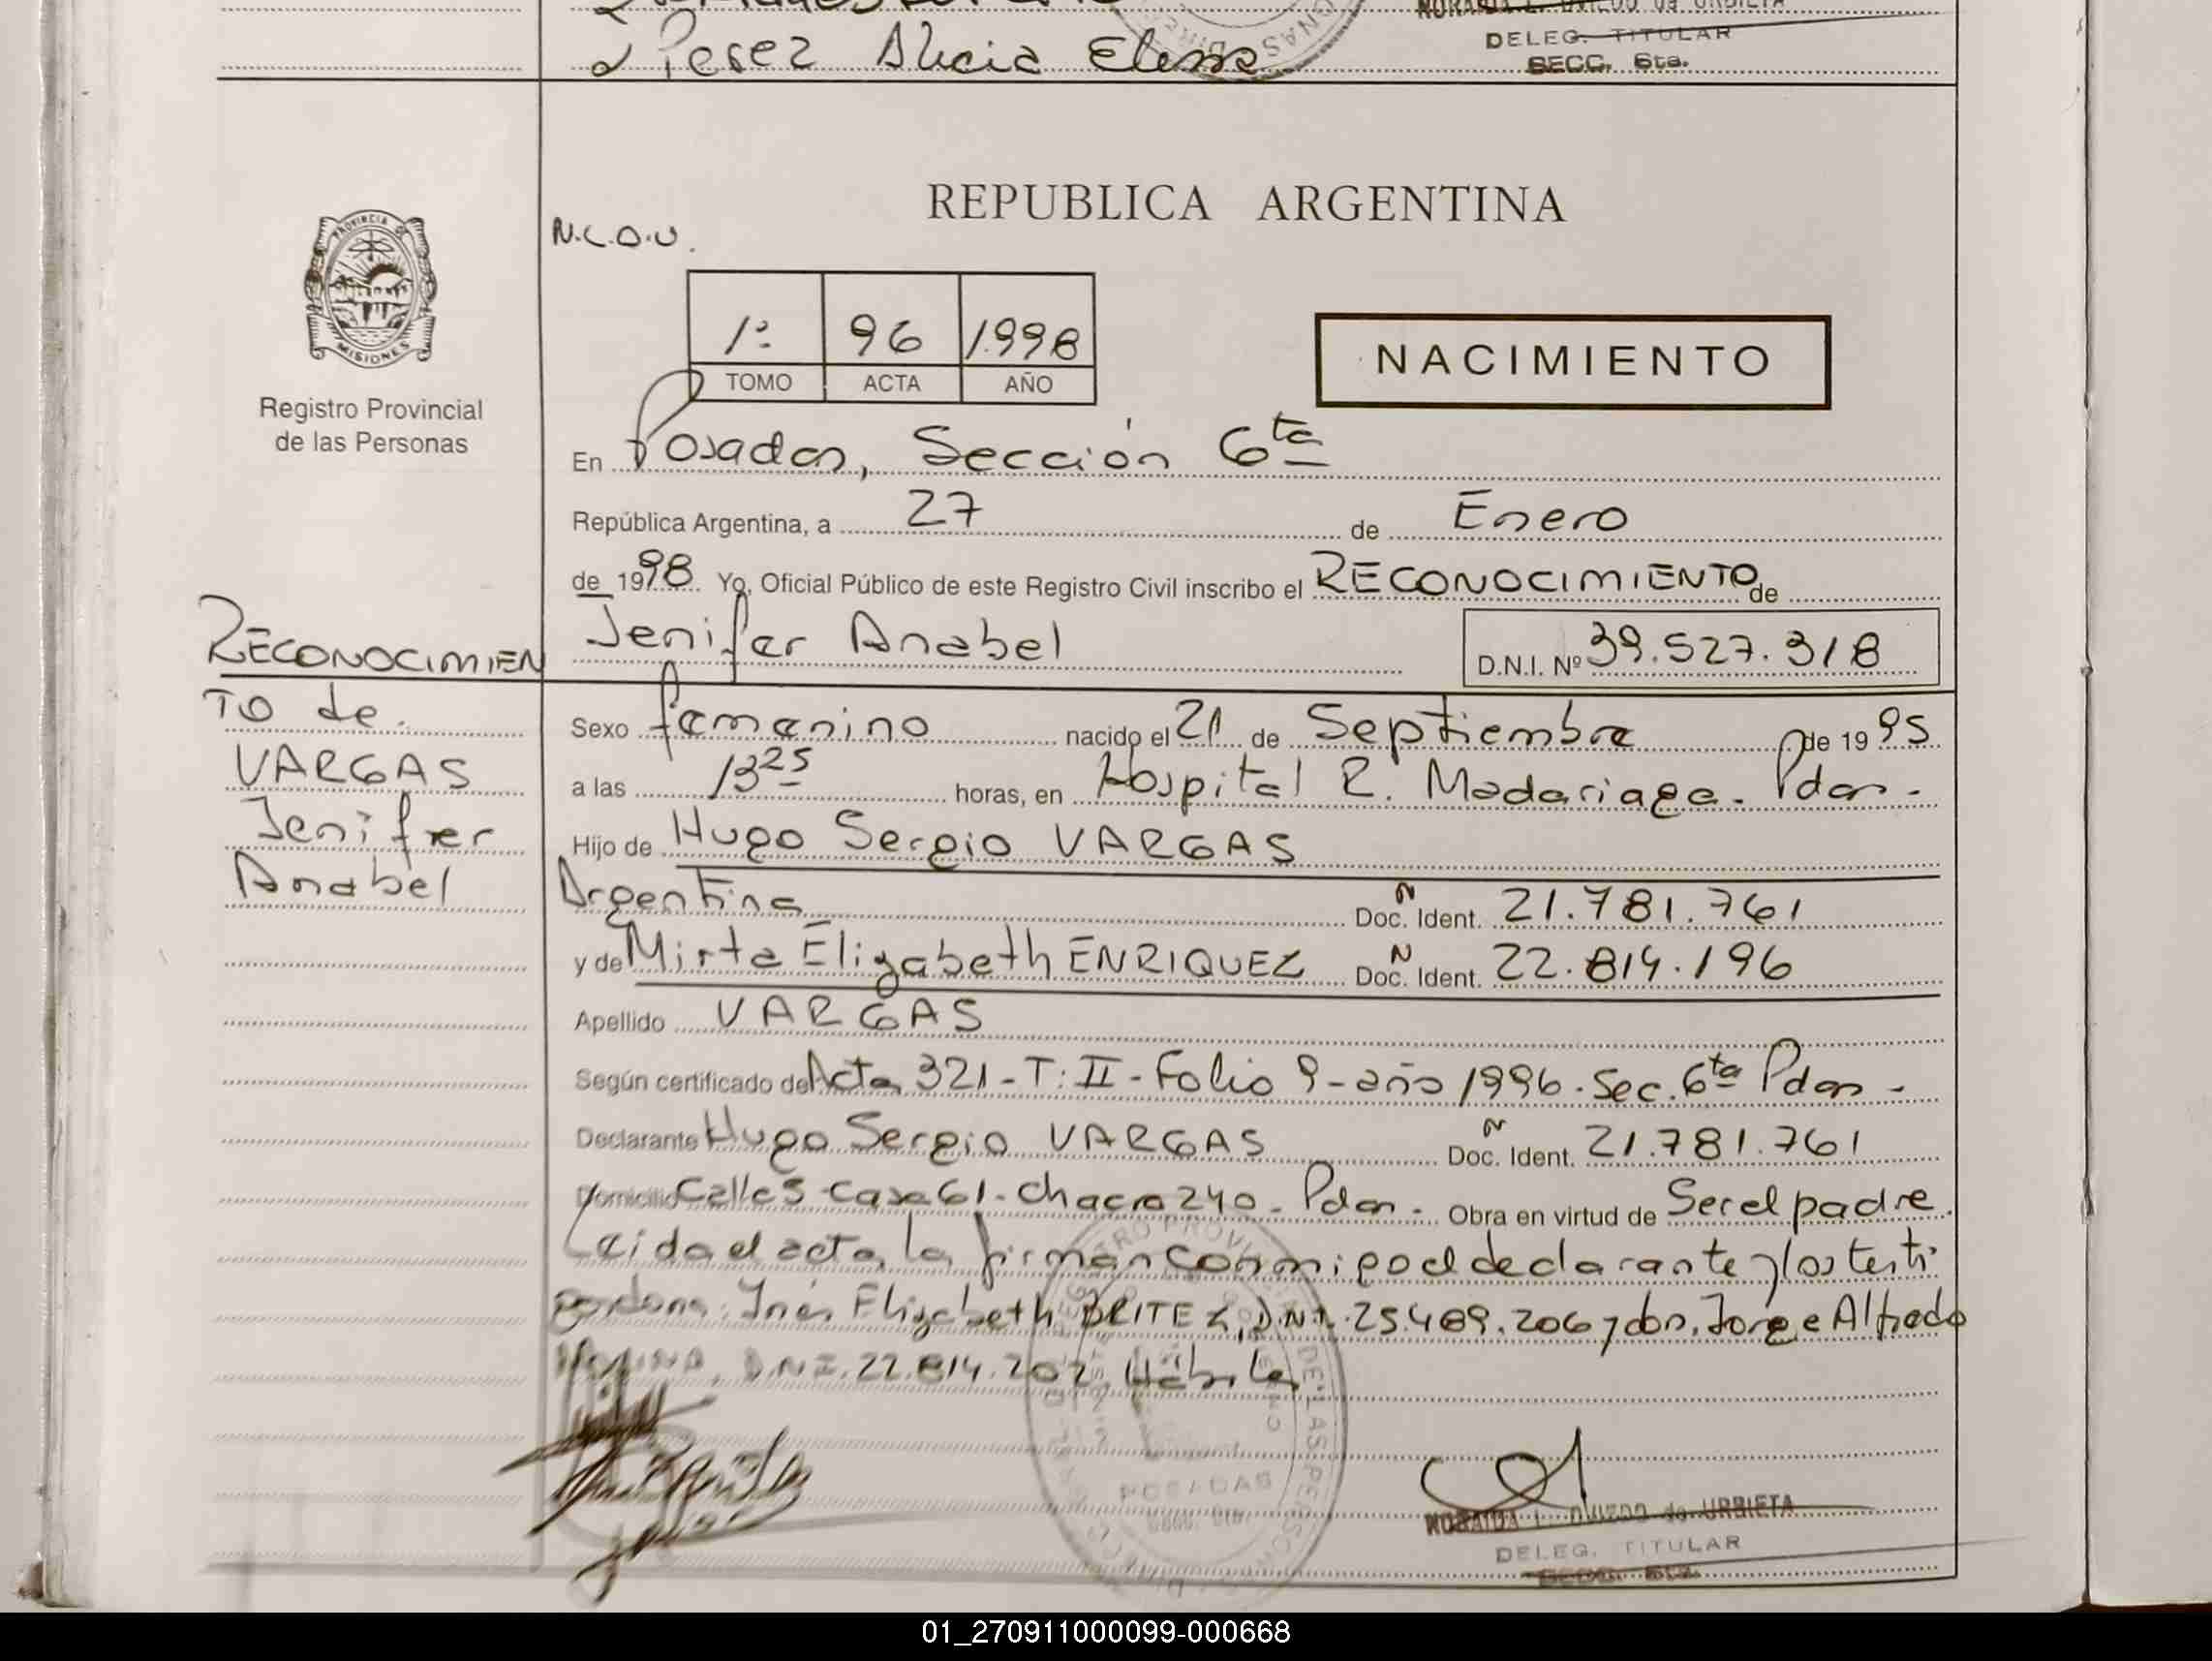 Perez Alicia Elena
DELEG. TITULAR
SECC. 6ta.
PROVINCIA D
MISIONES
Registro Provincial
de las Personas
REPUBLICA ARGENTINA
N.C.O.U.
1º 96 1998
TOMO ACTA AÑO
NACIMIENTO
En Posadas, Sección 6ta
República Argentina, a 27 de Enero
de 1998. Yo, Oficial Público de este Registro Civil inscribo el RECONOCIMIENTO de
Jenifer Anabel D.N.I. Nº 39.527.318
RECONOCIMIEN
TO de
VARGAS
Jenifer
Anabel
Sexo femenino nacido el 21 de Septiembre de 1995
a las 13 25 horas, en Hospital R. Madariaga. Pdas.
Hijo de Hugo Sergio VARGAS
Argentina Doc. Ident. 21.781.761
y de Mirta Elizabeth ENRIQUEZ Doc. Ident. 22.814.196
Apellido VARGAS
Según certificado de Acta 321-T:II-Folio 9-año 1996. Sec. 6ta Pdas-
Declarante Hugo Sergio VARGAS Doc. Ident. 21.781.761
Domicilio Calle 5 casa 61. chacra 240. Pdas. Obra en virtud de Ser el padre.
Leida el acta, la firman conmigo el declarante y los testi
gos doña: Inés Elizabeth BRITEZ, D.N.I. 25.489.206 y don, Jorge Alfredo
MOLINA, D.N.I. 22.814.202, Hábiles
POSADAS
NORAIDA L. OVIEDO de URBIETA
DELEG. TITULAR
SECC. 6ta.
01_270911000099-000668